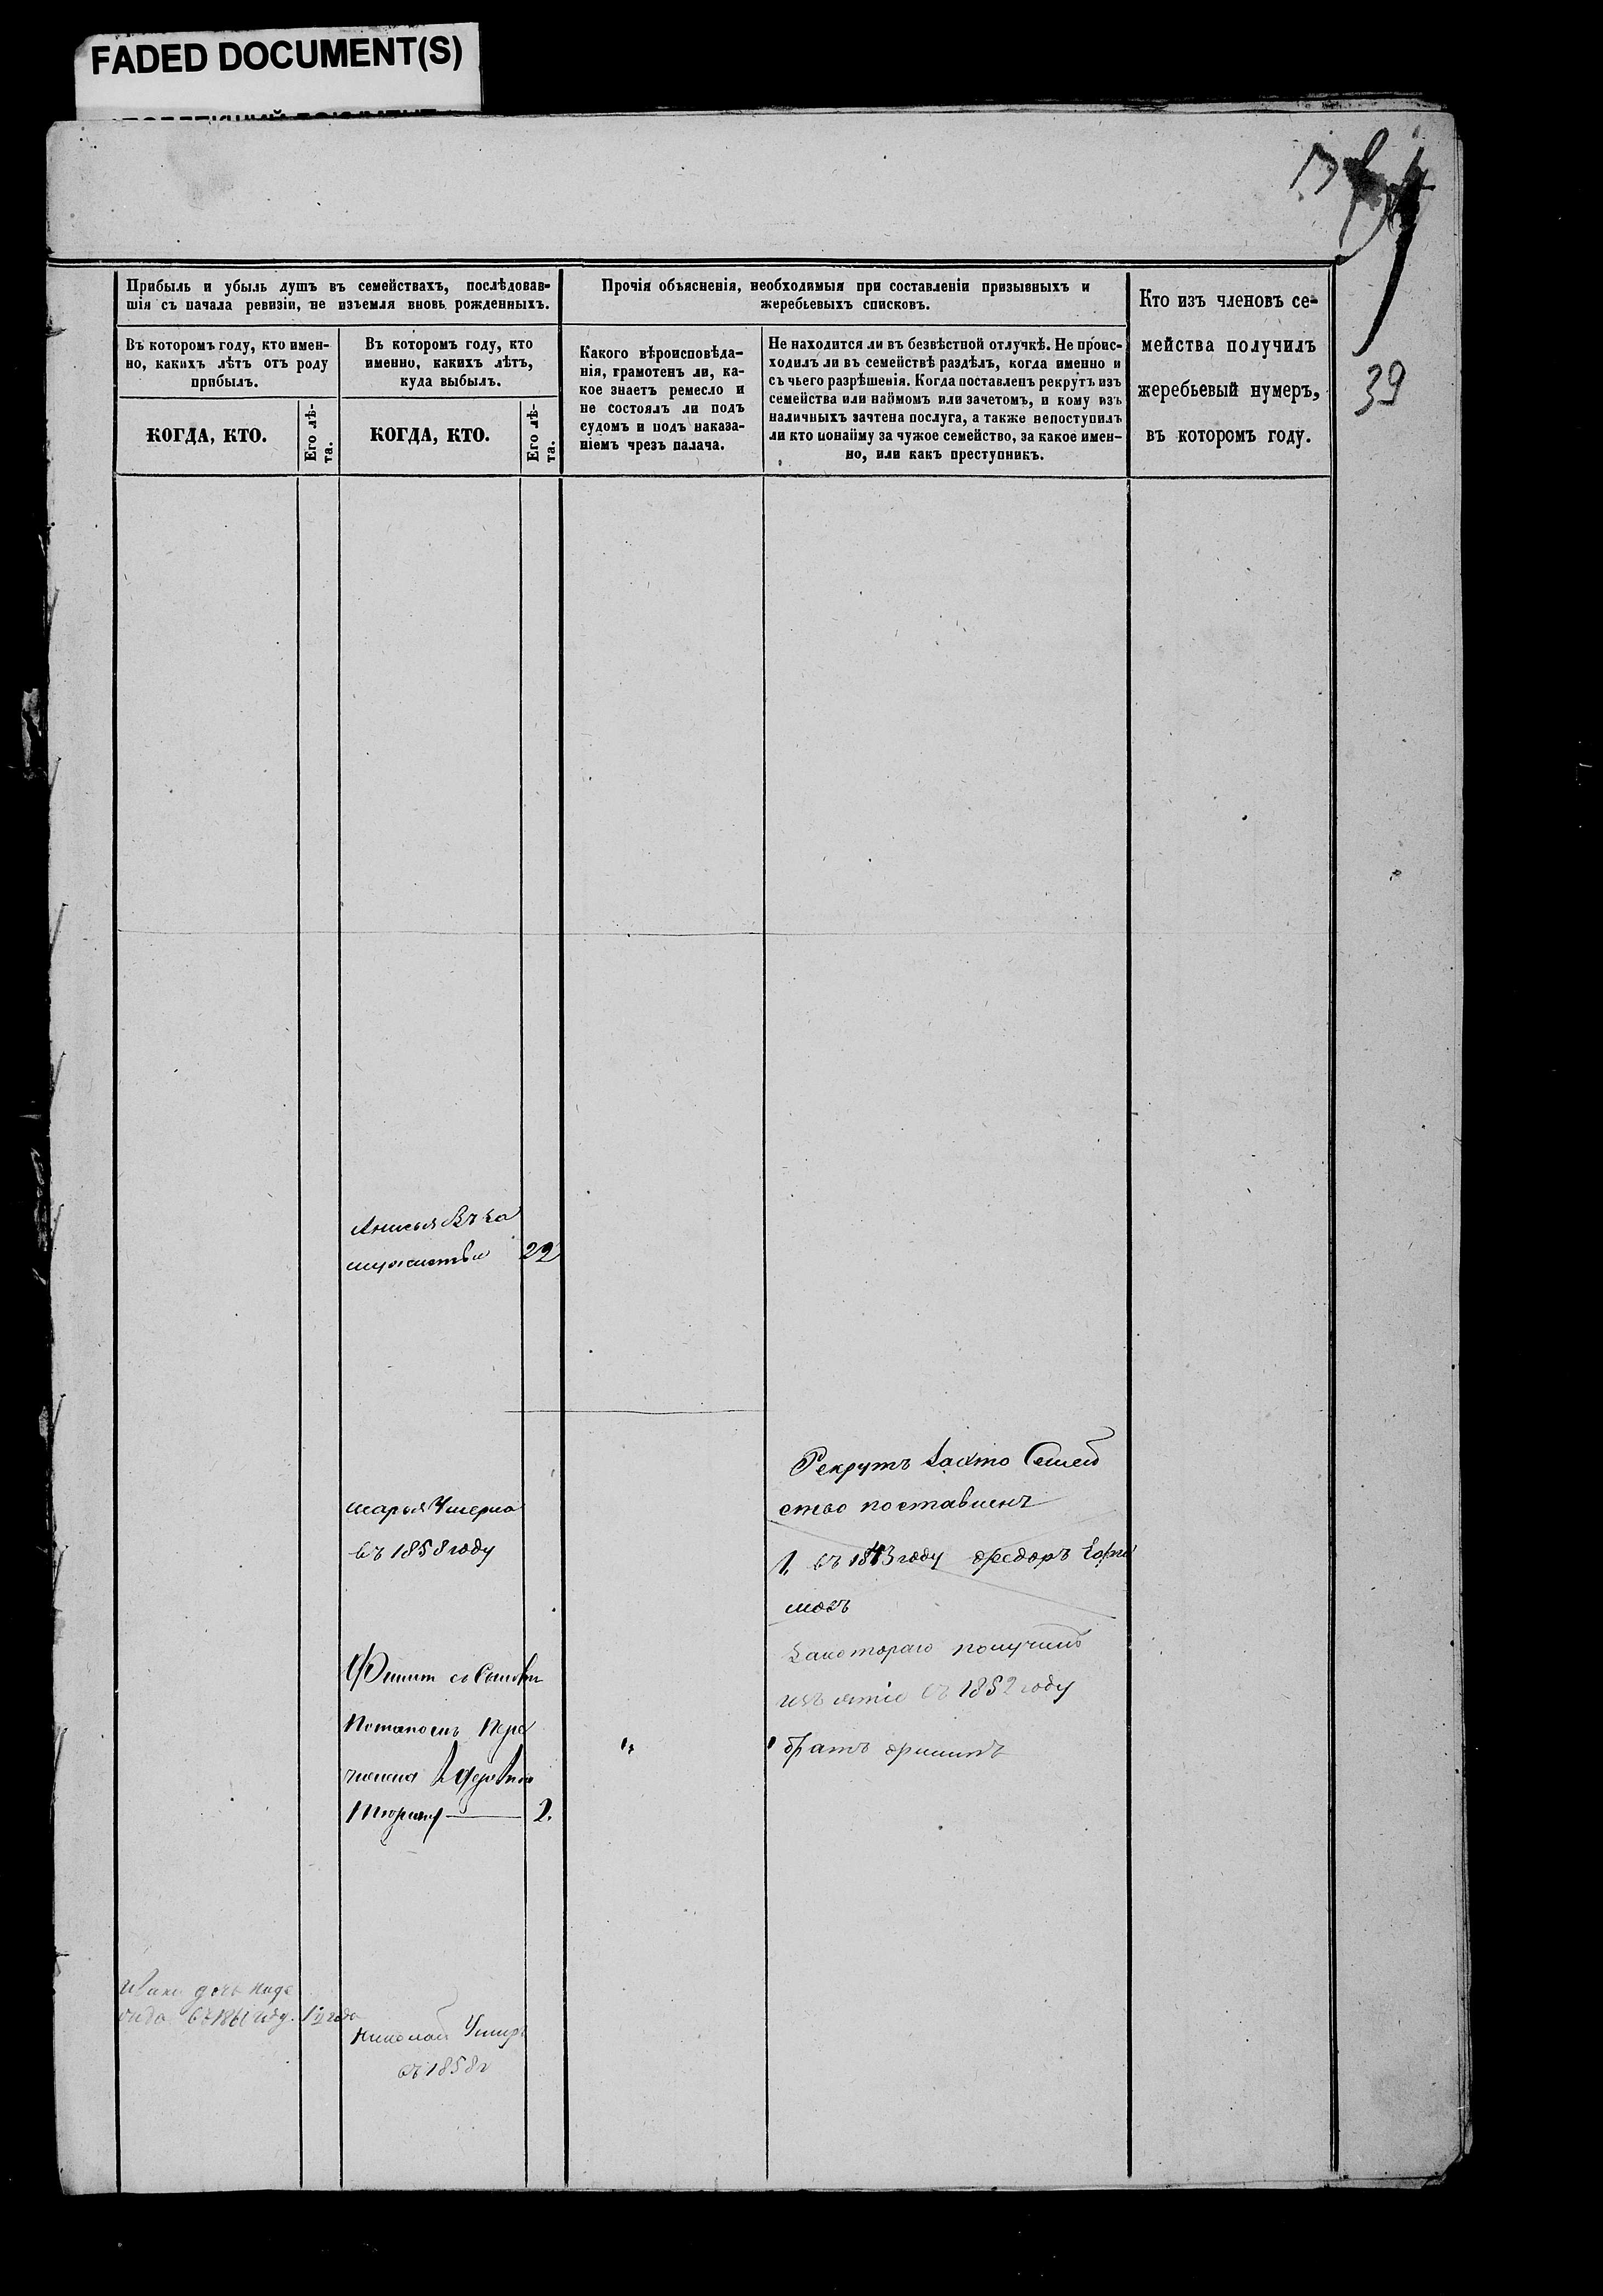 FADED DOCUMENT(S)
39
Прибыль и убыль душъ въ семействахъ, послѣдовав-
шія съ начала ревизіи, не изъемля вновь рожденныхъ.
Въ которомъ году, кто имен-
но, какихъ лѣтъ отъ роду
прибылъ.
КОГДА, КТО.
Его лѣ-
та.
Въ которомъ году, кто
именно, какихъ лѣтъ,
куда выбылъ.
КОГДА, КТО.
Его лѣ-
та.
Прочія объясненія, необходимыя при составленіи призывныхъ и
жеребьевыхъ списковъ.
Какого вѣроисповѣда-
нія, грамотенъ ли, ка-
кое знаетъ ремесло и
не состоялъ ли подъ
судомъ и подъ наказа-
ніемъ чрезъ палача.
Не находится ли въ безвѣстной отлучкѣ. Не проис-
ходилъ ли въ семействѣ раздѣлъ, когда именно и
съ чьего разрѣшенія. Когда поставленъ рекрутъ изъ
семейства или наймомъ или зачетомъ, и кому изъ
наличныхъ зачтена послуга, а также непоступилъ
ли кто понайму за чужое семейство, за какое имен-
но, или какъ преступникъ.
Кто изъ членовъ се-
мейства получилъ
жеребьевый нумеръ,
въ которомъ году.
Анисья въ за
мужистьи 22
марья Умерла
въ 1858 году
Филип
Потапомъ Пере
2.
Николай Умиръ
въ 1858 г
дочь
въ 1861 году. 1½ года
Рекрутъ Семей
ство поставленъ
1, въ 1843 году Федоръ
мовъ
закотораго получилъ
въ 1852 году
братъ Филипъ